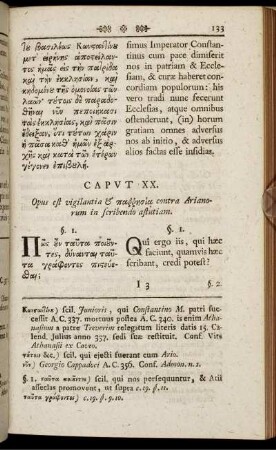 133
Τῦ Βασιλέως Κωνσαντίνου
μετ᾽ εἰρήνης ἀποσείλαν-
τος ἡμᾶς εἰς τὴν πατρίδα
καὶ τὴν ἐκκλησίαν, καὶ
κηδομένου τῆς ὁμονοίας τῶν
λαῶν· τούτων δὲ παραδο-
θῆναι νῦν πεποιηκασι
τὰς ἐκκλησίας, καὶ πᾶσιν
ἔδειξαν, ὅτι τούτων χάριν
ἡ πᾶσα καθ᾽ ἡμῶν ἐξαρχῆς
καὶ κατὰ τῶν ἑτέρων
γέγονεν ἐπιβουλή.
simus Imperator Constan-
tinus cum pace dimiserit
nos in patriam & Eccle-
siam, & curæ haberet con-
cordiam populorum: his
vero tradi nunc fecerunt
Ecclesias, atque omnibus
ostenderunt, (in) horum
gratiam omnes adversus
nos ab initio, & adversus
alios factas esse insidias.
CAPVT XX.
Opus est vigilantia & παῤῥησίᾳ contra Ariano-
rum in scribendo astutiam.
§. 1.
Πῶς οὖν ταῦτα ποιοῦν-
τες, δύνανται, ταῦ-
τα γράφοντες πιςεύε-
θαι;
§. 1.
Qui ergo iis, qui hæc
faciunt, quamvis hæc
scribant, credi potest?
I 3
§. 2.
scil. Junioris, qui Constantino M. patri suc-
cessit A.C. 337. mortuus postea A.C. 340. is enim Atha-
nasium a patre Treverim relegatum literis datis 15. Ca-
lend. Julias anno 337. sedi suæ restituit. Conf. Vita
Athanasii ex Caveo.
scil. qui ejecti fuerant cum Ario.
νῦν) Georgio Cappadoci A.C. 356. Conf. Admon. n. 1.
scil. qui nos persequuntur, & Arii
asseclas promovent, ut supra c. 19. §. 9.
ταῦτα γράφοντες) c. 19. §. 10.